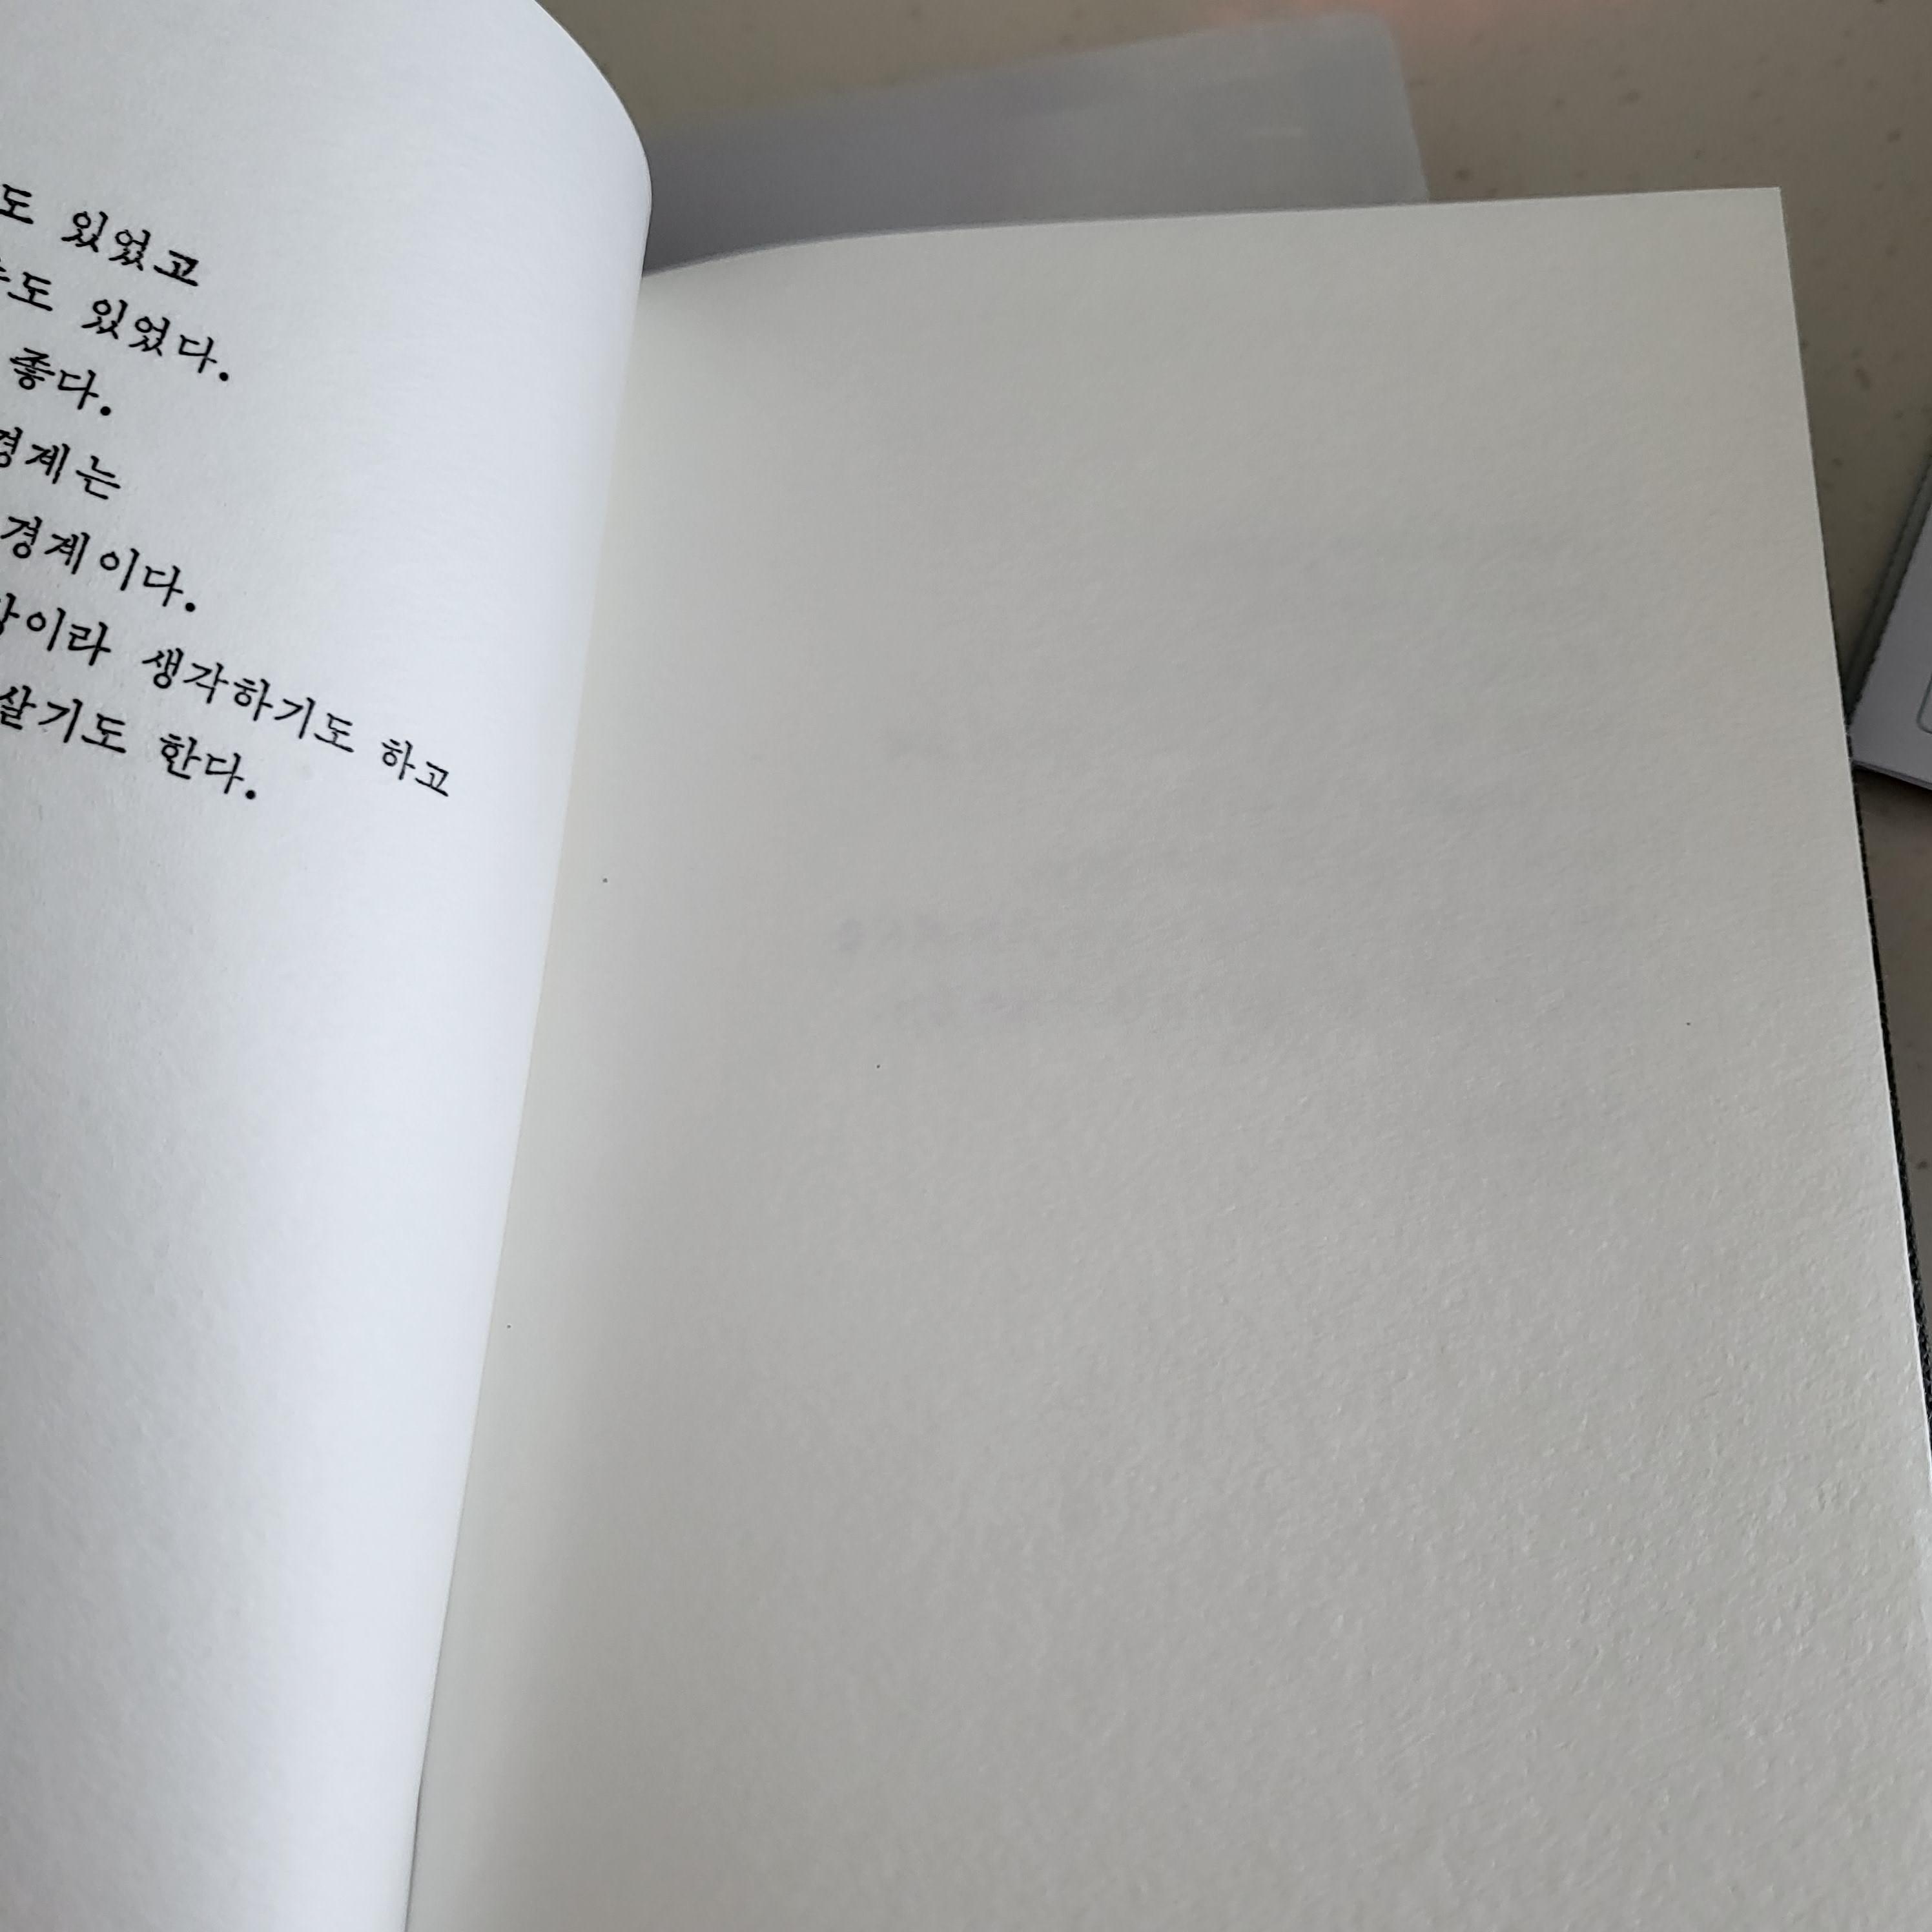 도 있었고
도 있었다.
좋다.
경계는
경계이다.
이라 생각하기도 하고
살기도 한다.